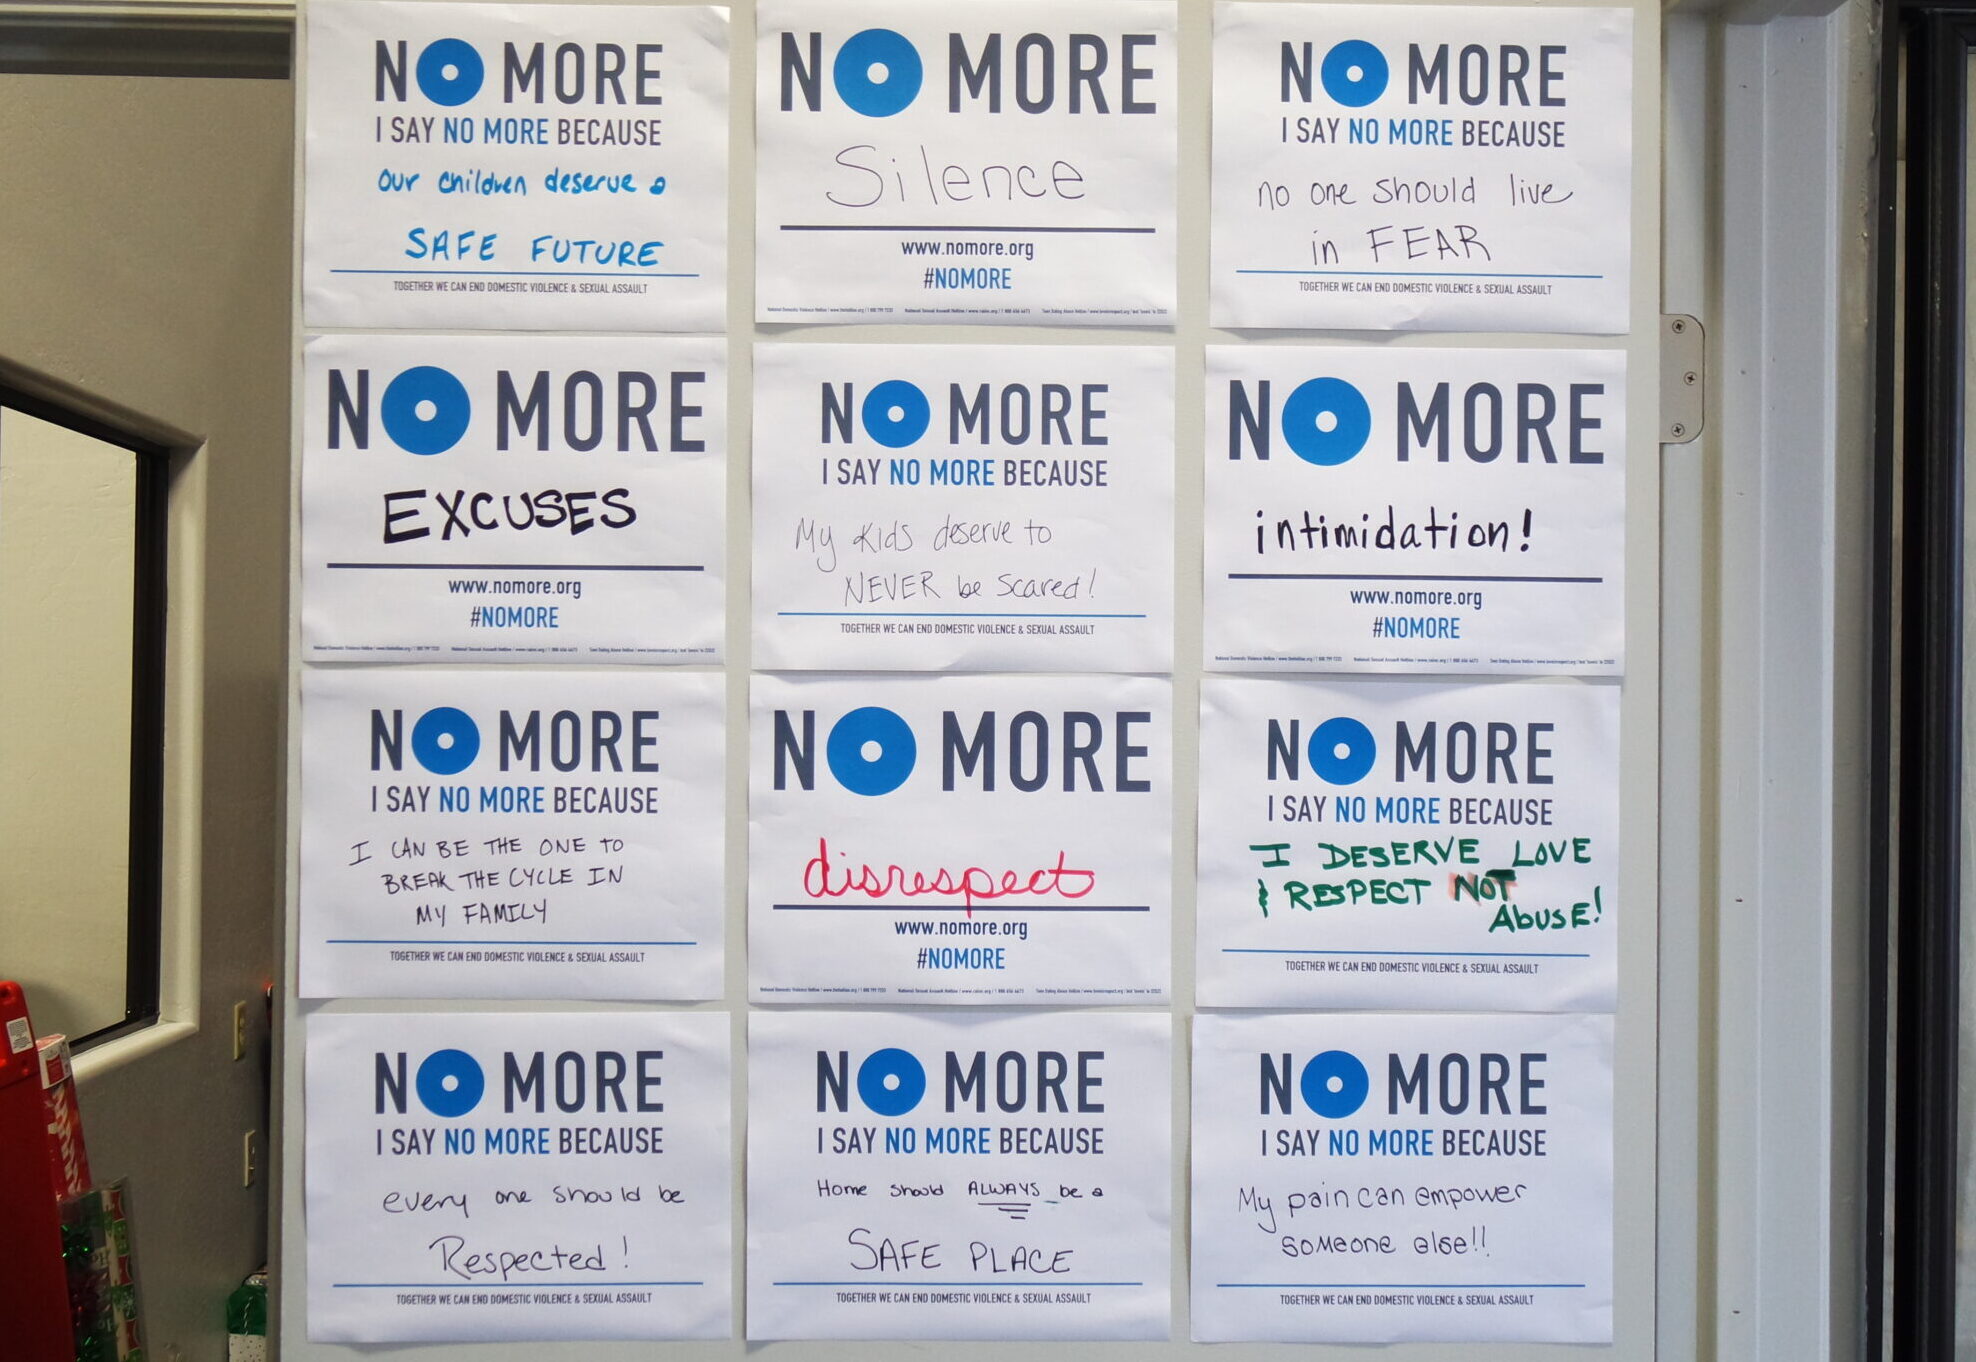 NO MORE
I SAY NO MORE BECAUSE
our children deserve a
SAFE FUTURE
TOGETHER WE CAN END DOMESTIC VIOLENCE & SEXUAL ASSAULT
NO MORE
Silence
www.nomore.org
#NOMORE
NO MORE
I SAY NO MORE BECAUSE
no one should live
in FEAR
TOGETHER WE CAN END DOMESTIC VIOLENCE & SEXUAL ASSAULT
NO MORE
EXCUSES
www.nomore.org
#NOMORE
NO MORE
I SAY NO MORE BECAUSE
My kids deserve to
NEVER be scared!
TOGETHER WE CAN END DOMESTIC VIOLENCE & SEXUAL ASSAULT
NO MORE
intimidation!
www.nomore.org
#NOMORE
NO MORE
I SAY NO MORE BECAUSE
I CAN BE THE ONE TO
BREAK THE CYCLE IN
MY FAMILY
TOGETHER WE CAN END DOMESTIC VIOLENCE & SEXUAL ASSAULT
NO MORE
disrespect
www.nomore.org
#NOMORE
NO MORE
I SAY NO MORE BECAUSE
I DESERVE LOVE
& RESPECT NOT
ABUSE!
TOGETHER WE CAN END DOMESTIC VIOLENCE & SEXUAL ASSAULT
NO MORE
I SAY NO MORE BECAUSE
every one should be
Respected!
TOGETHER WE CAN END DOMESTIC VIOLENCE & SEXUAL ASSAULT
NO MORE
I SAY NO MORE BECAUSE
Home should ALWAYS be a
SAFE PLACE
TOGETHER WE CAN END DOMESTIC VIOLENCE & SEXUAL ASSAULT
NO MORE
I SAY NO MORE BECAUSE
My pain can empower
someone else!!
TOGETHER WE CAN END DOMESTIC VIOLENCE & SEXUAL ASSAULT